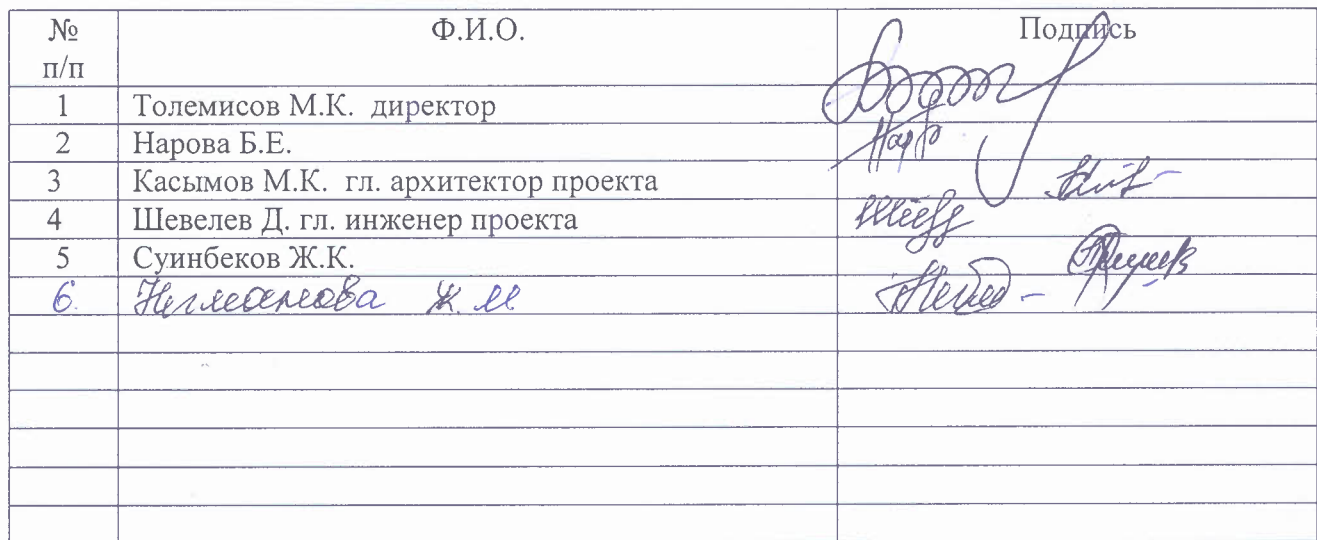 № п/п Ф.И.О. Подпись
1 Толемисов М.К. директор
2 Нарова Б.Е.
3 Касымов М.К. гл. архитектор проекта
4 Шевелев Д. гл. инженер проекта
5 Суинбеков Ж.К.
6. Нигманова Ж.М